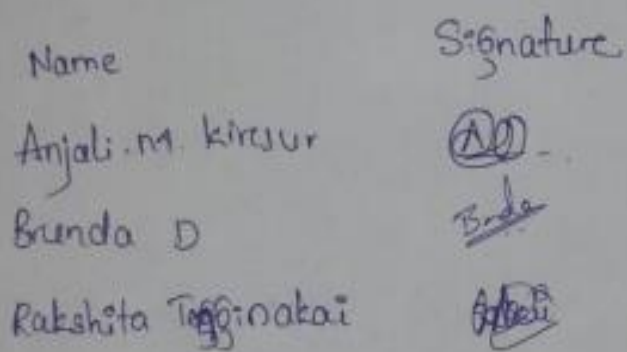 Name Signature
Anjali.M. kiresur
Brunda D Brnda
Rakshita Togginakai